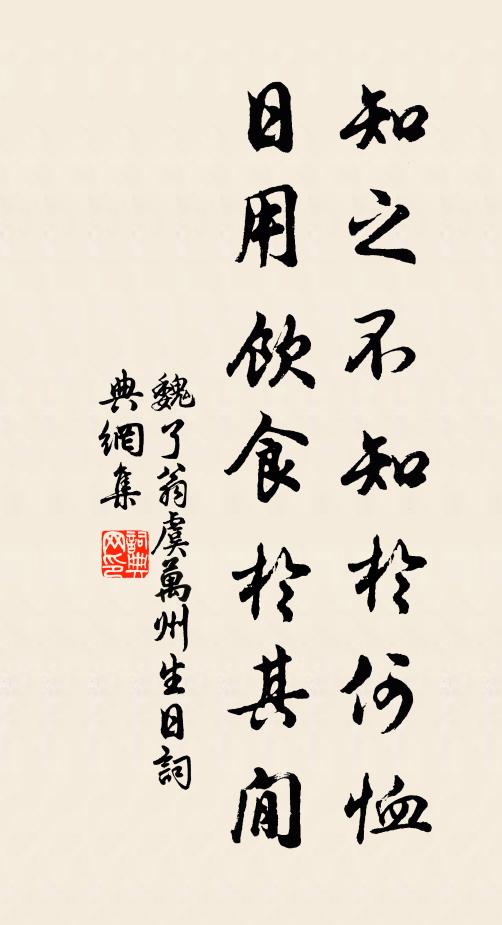 知之不知於何恤
日用飲食於其閒
魏了翁虞萬州生日詞
典網集
詞典网印